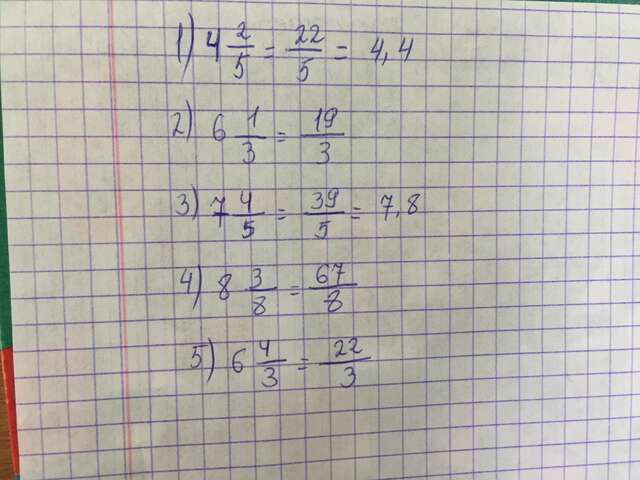 1) 4 2/5 = 22/5 = 4,4
2) 6 1/3 = 19/3
3) 7 4/5 = 39/5 = 7,8
4) 8 3/8 = 67/8
5) 6 4/3 = 22/3